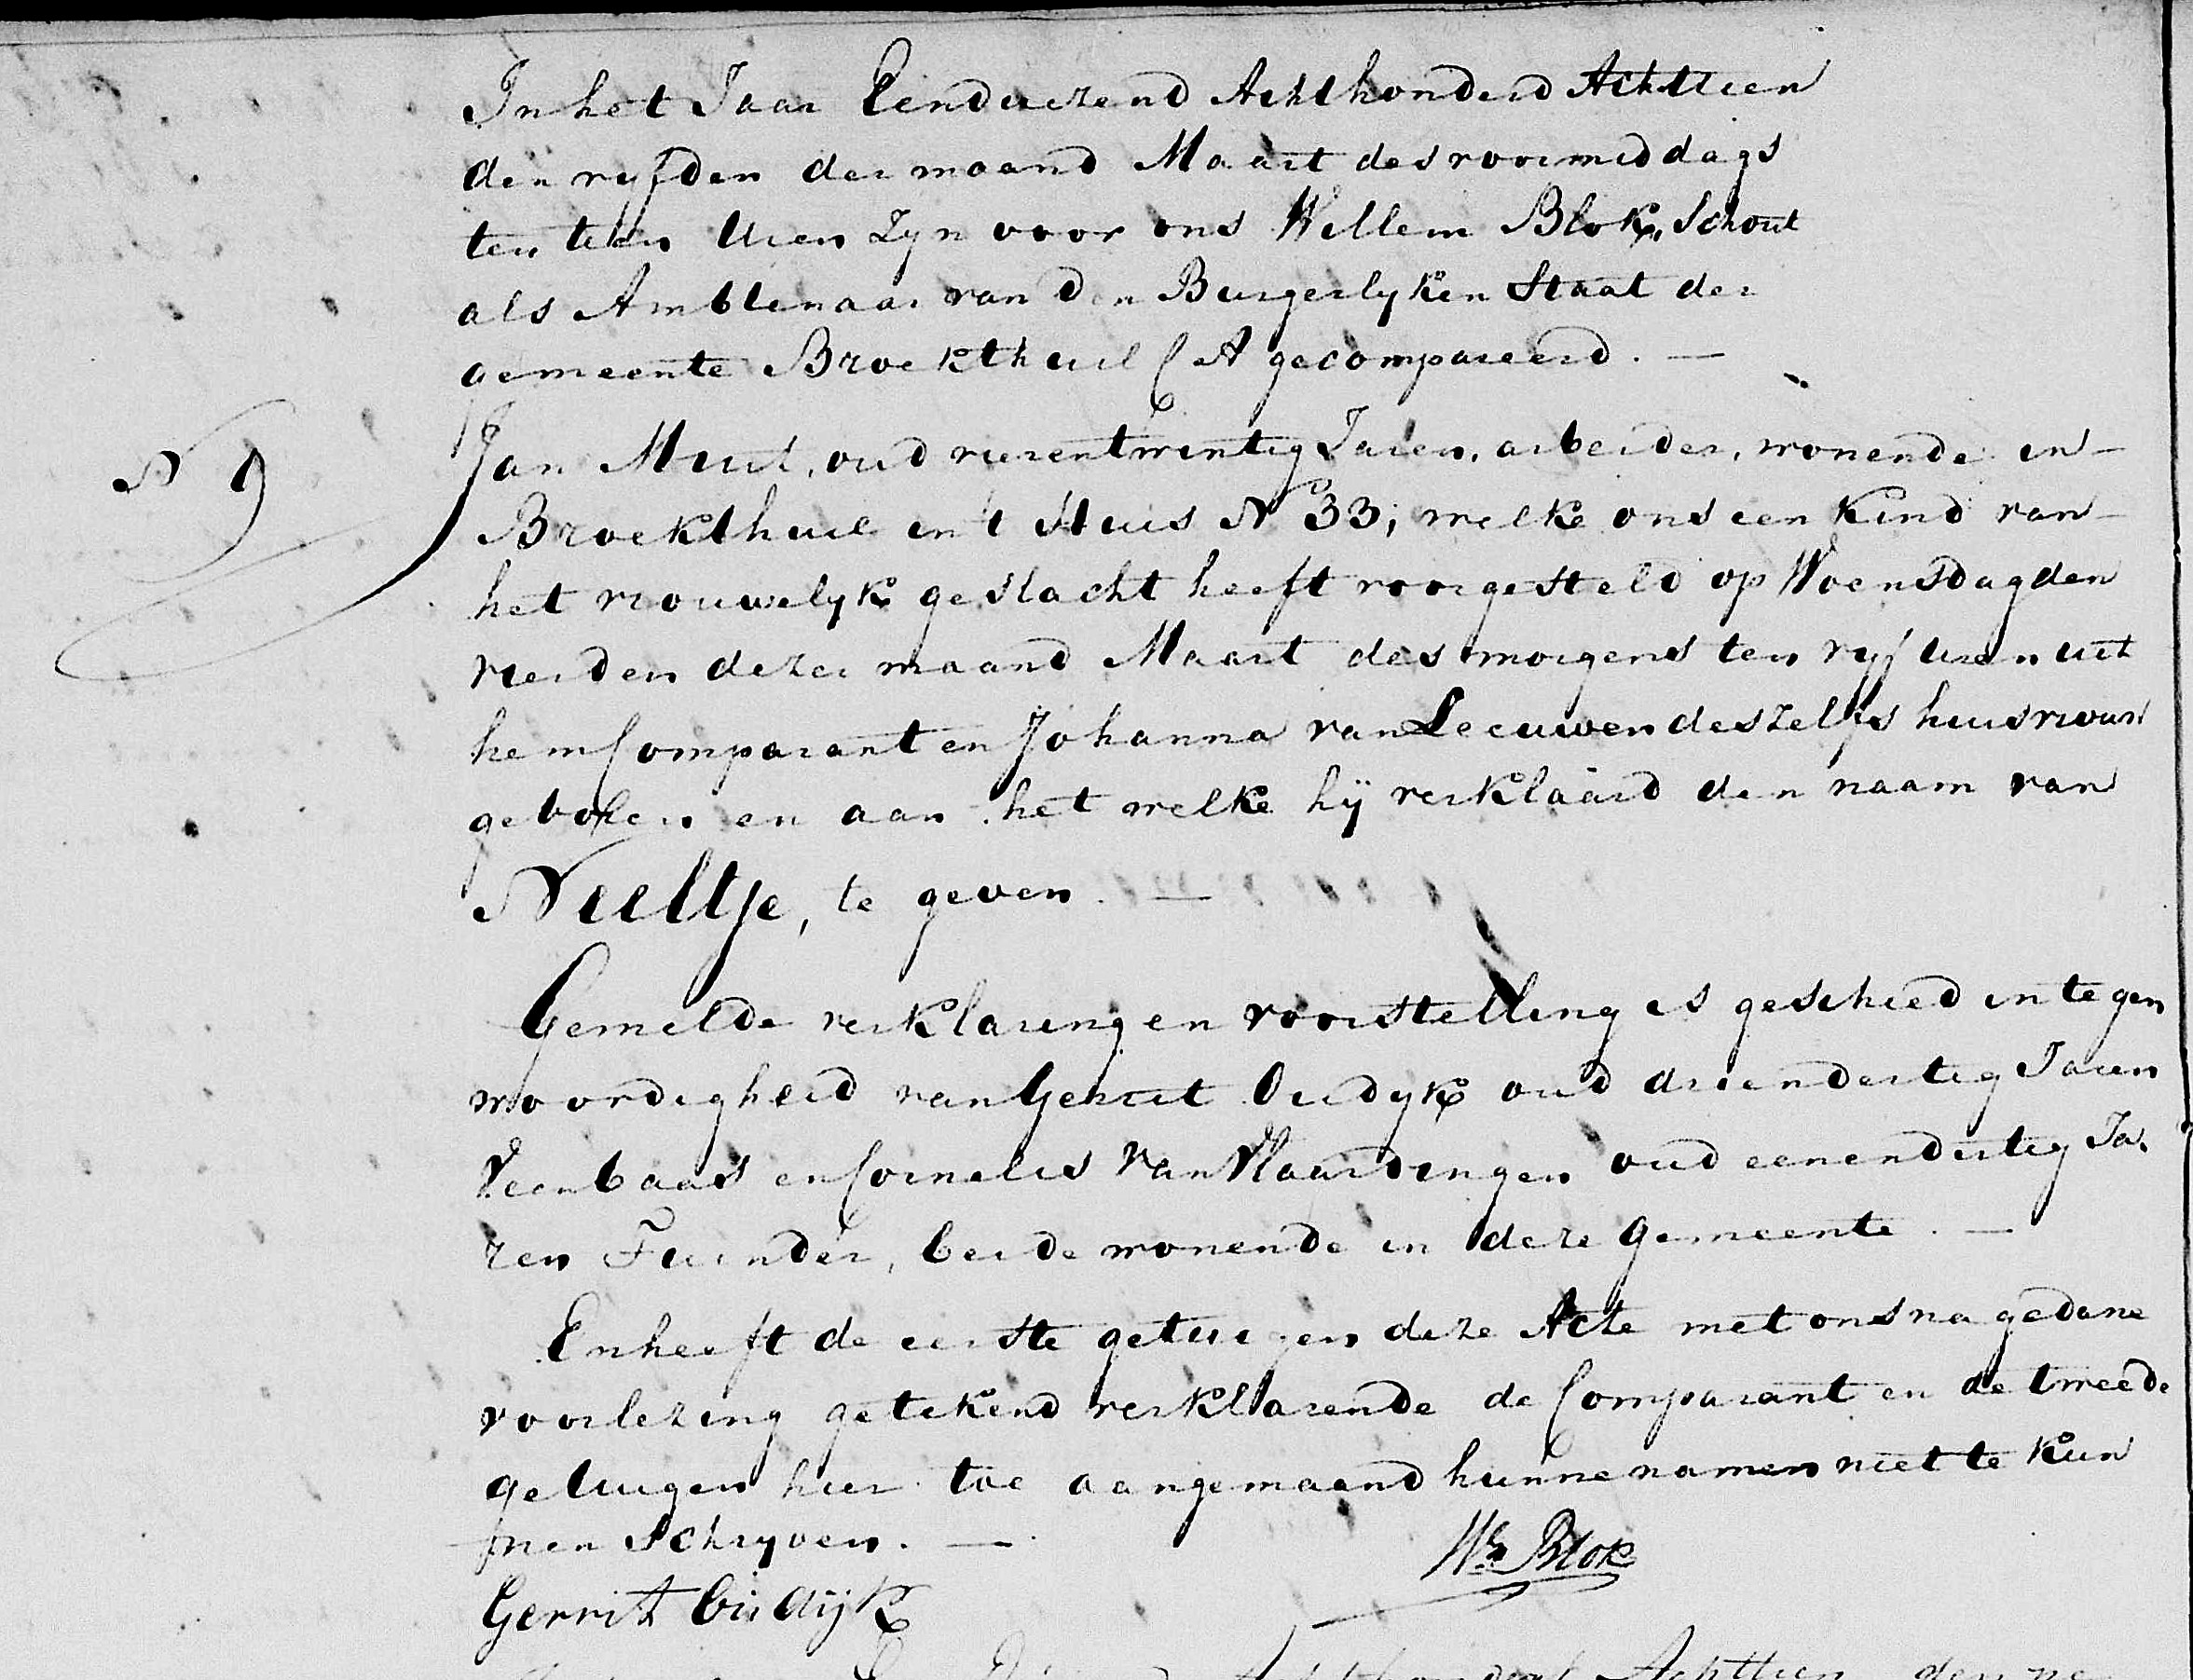 In het Jaar Eenduizend Achthonderd Achttien
den vyfden der maand Maart des voormiddags
ten tien Uren Zyn voor ons Willem Blok, Schout
als Ambtenaar van den Burgerlyken Staat der
gemeente Broekthuil CA gecompareerd. —
N 9
Jan Muit, oud vierentwintig Jaren, arbeider, wonende in
Broekthuil in 't Huis N 33; welke ons een Kind van
het vrouwelyk geslacht heeft voorgesteld op Woensdag den
vierden dezer maand Maart des morgens ten vyf uren uit
hem Comparant en Johanna van Leeuwen deszelfs huisvrouw
geboren en aan het welke hij verklaard den naam van
Neeltje, te geven. —
Gemelde verklaring en voorstelling is geschied in tegen
woordigheid van Gerrit Ouдyk oud drieendertig Jaren
Veenbaas en Cornelis Van Vlaardingen oud eenendertig Ja
ren Tuinder, beide wonende in deze Gemeente. —
En heeft de eerste getuigen deze Acte met ons na gedane
voorlezing getekend verklarende de Comparant en de tweede
getuigen hier toe aangemaand hunne namen niet te kun
nen Schryven. —
Wm Blok
Gerrit Oudijk